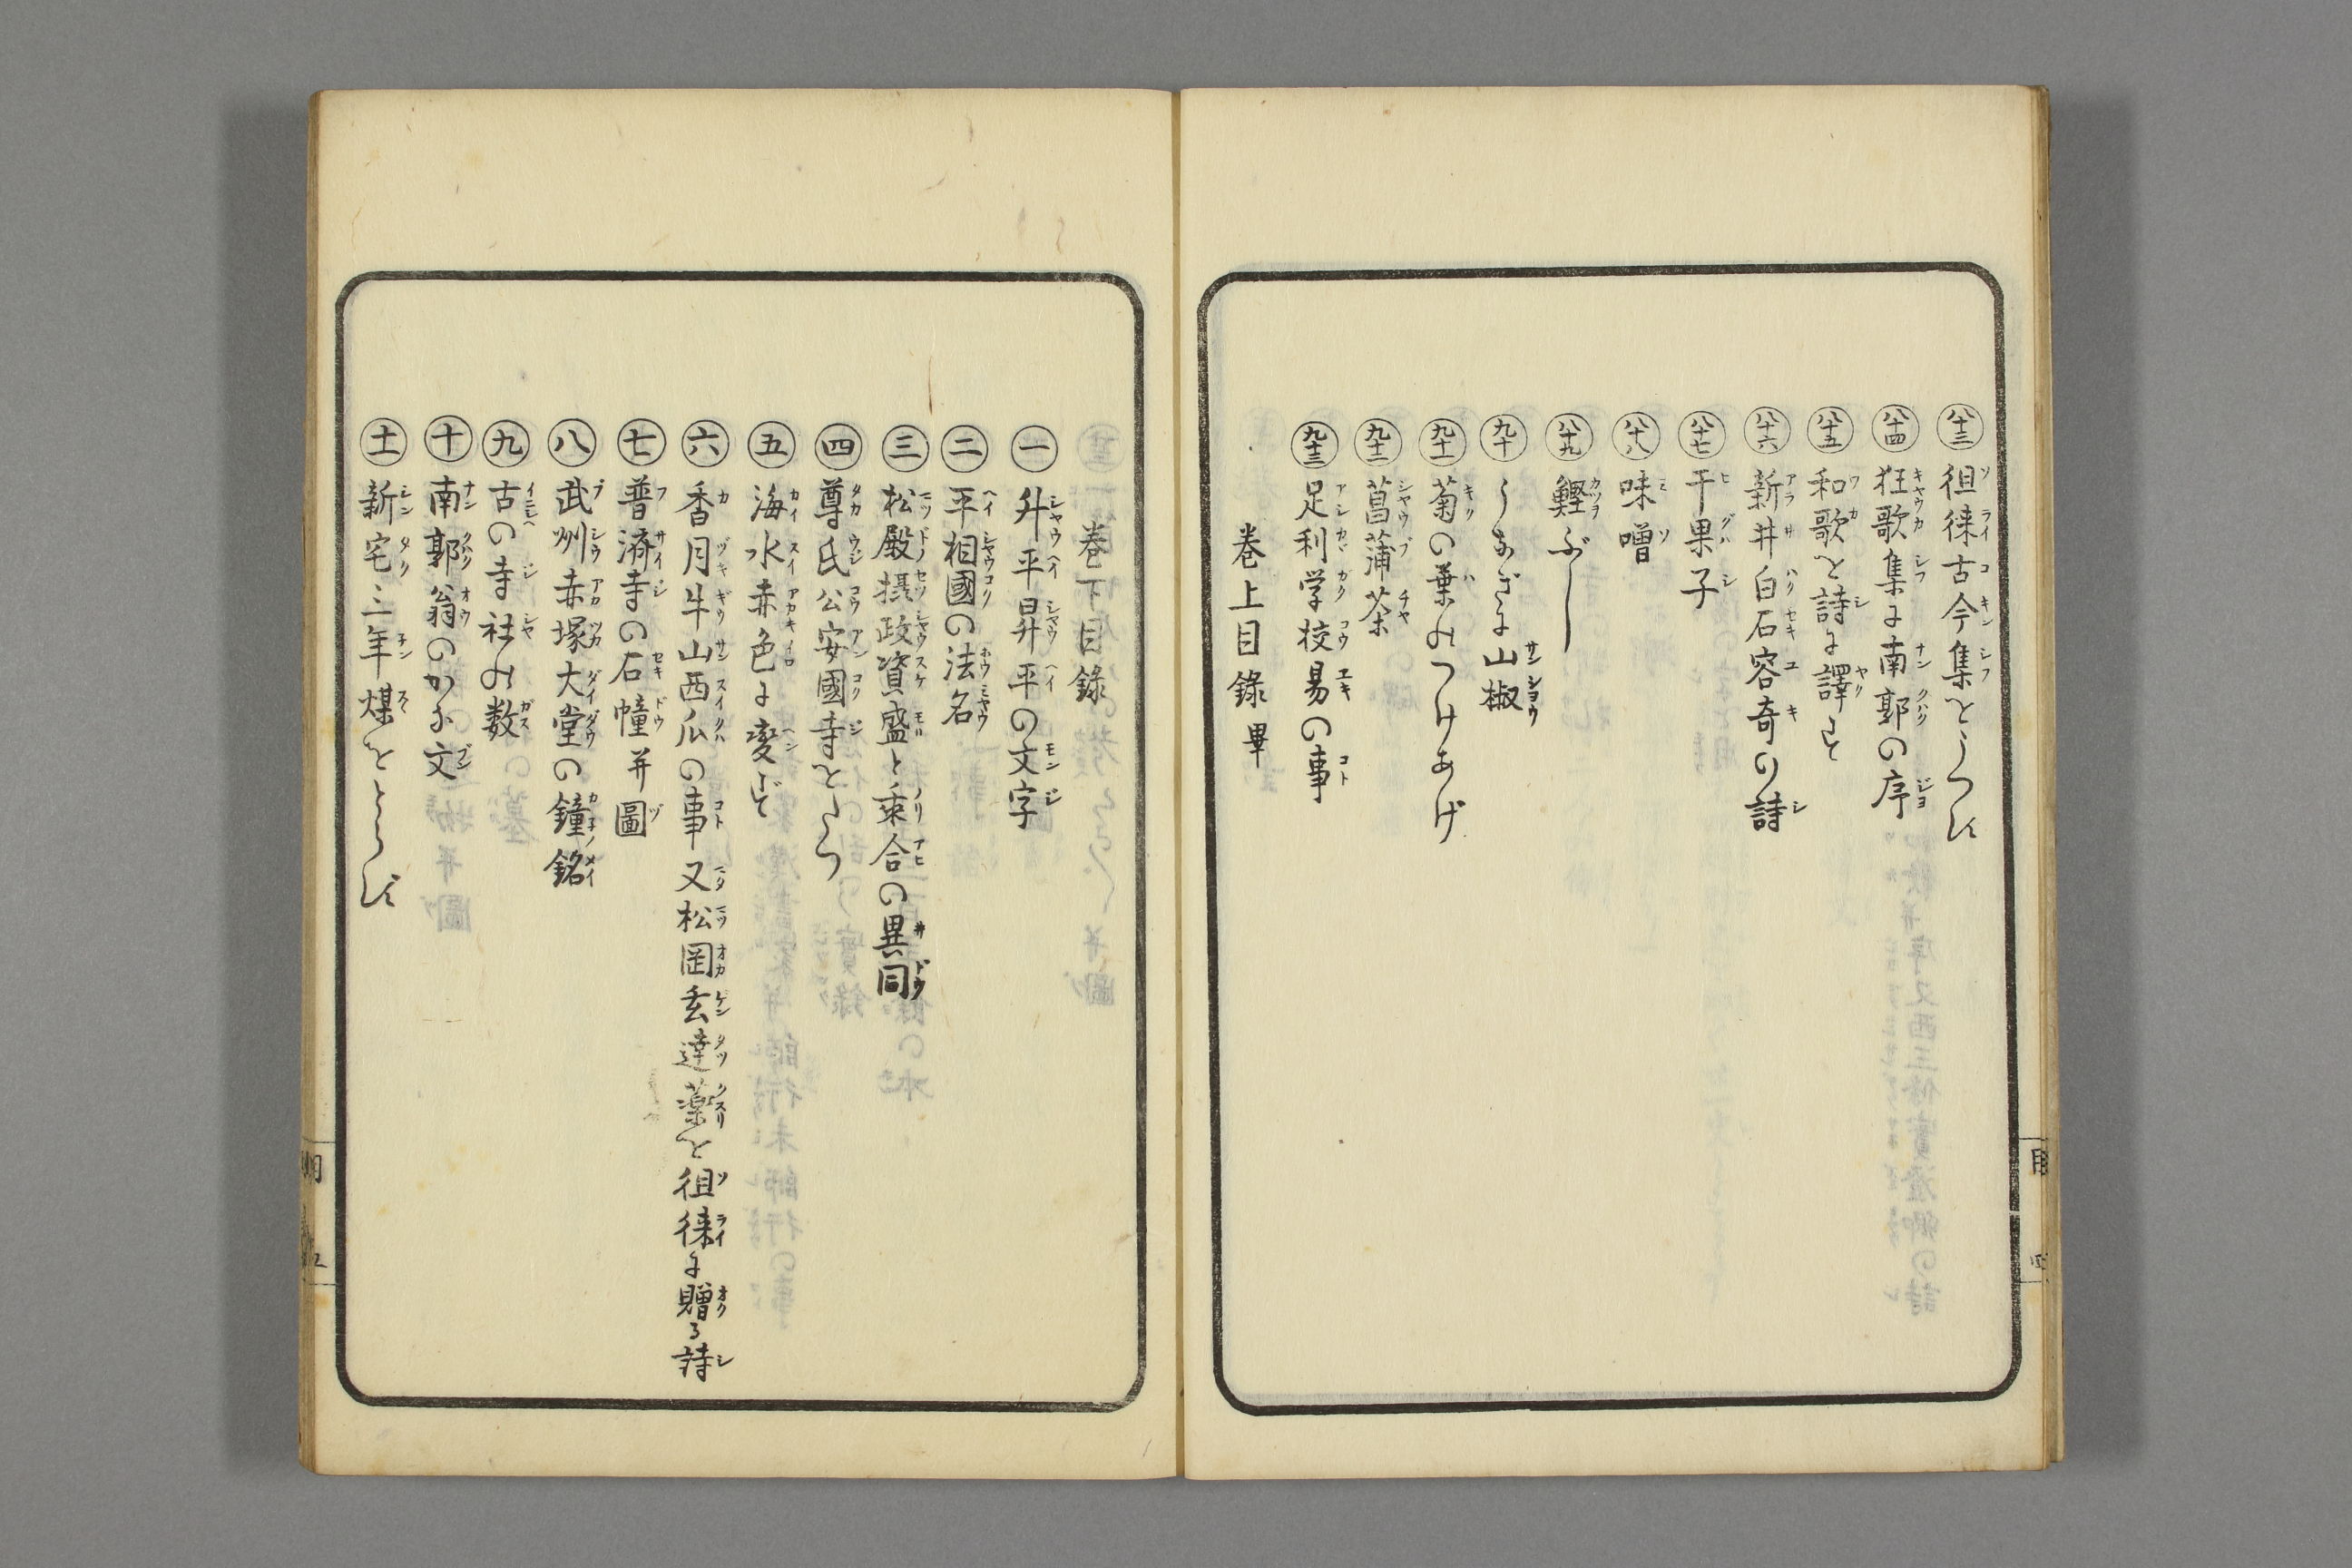 八十三 徂徠古今集をうつす
八十四 狂歌集に南郭の序
八十五 和歌を詩に譯す
八十六 新井白石容奇の詩
八十七 干果子
八十八 味噌
八十九 鰹ぶし
九十 うなぎに山椒
九十一 菊の葉のつけあげ
九十二 菖蒲茶
九十三 足利学校易の事
巻上目錄畢
巻下目錄
一 升平昇平の文字
二 平相國の法名
三 松殿摂政資盛と乘合の異同
四 尊氏公安國寺をたつ
五 海水赤色に変ず
六 香月牛山西瓜の事又松岡玄達薬を徂徠に贈る詩
七 普済寺の石幢并圖
八 武州赤塚大堂の鐘銘
九 古の寺社の数
十 南郭翁のかな文
十一 新宅三年煤をとらず